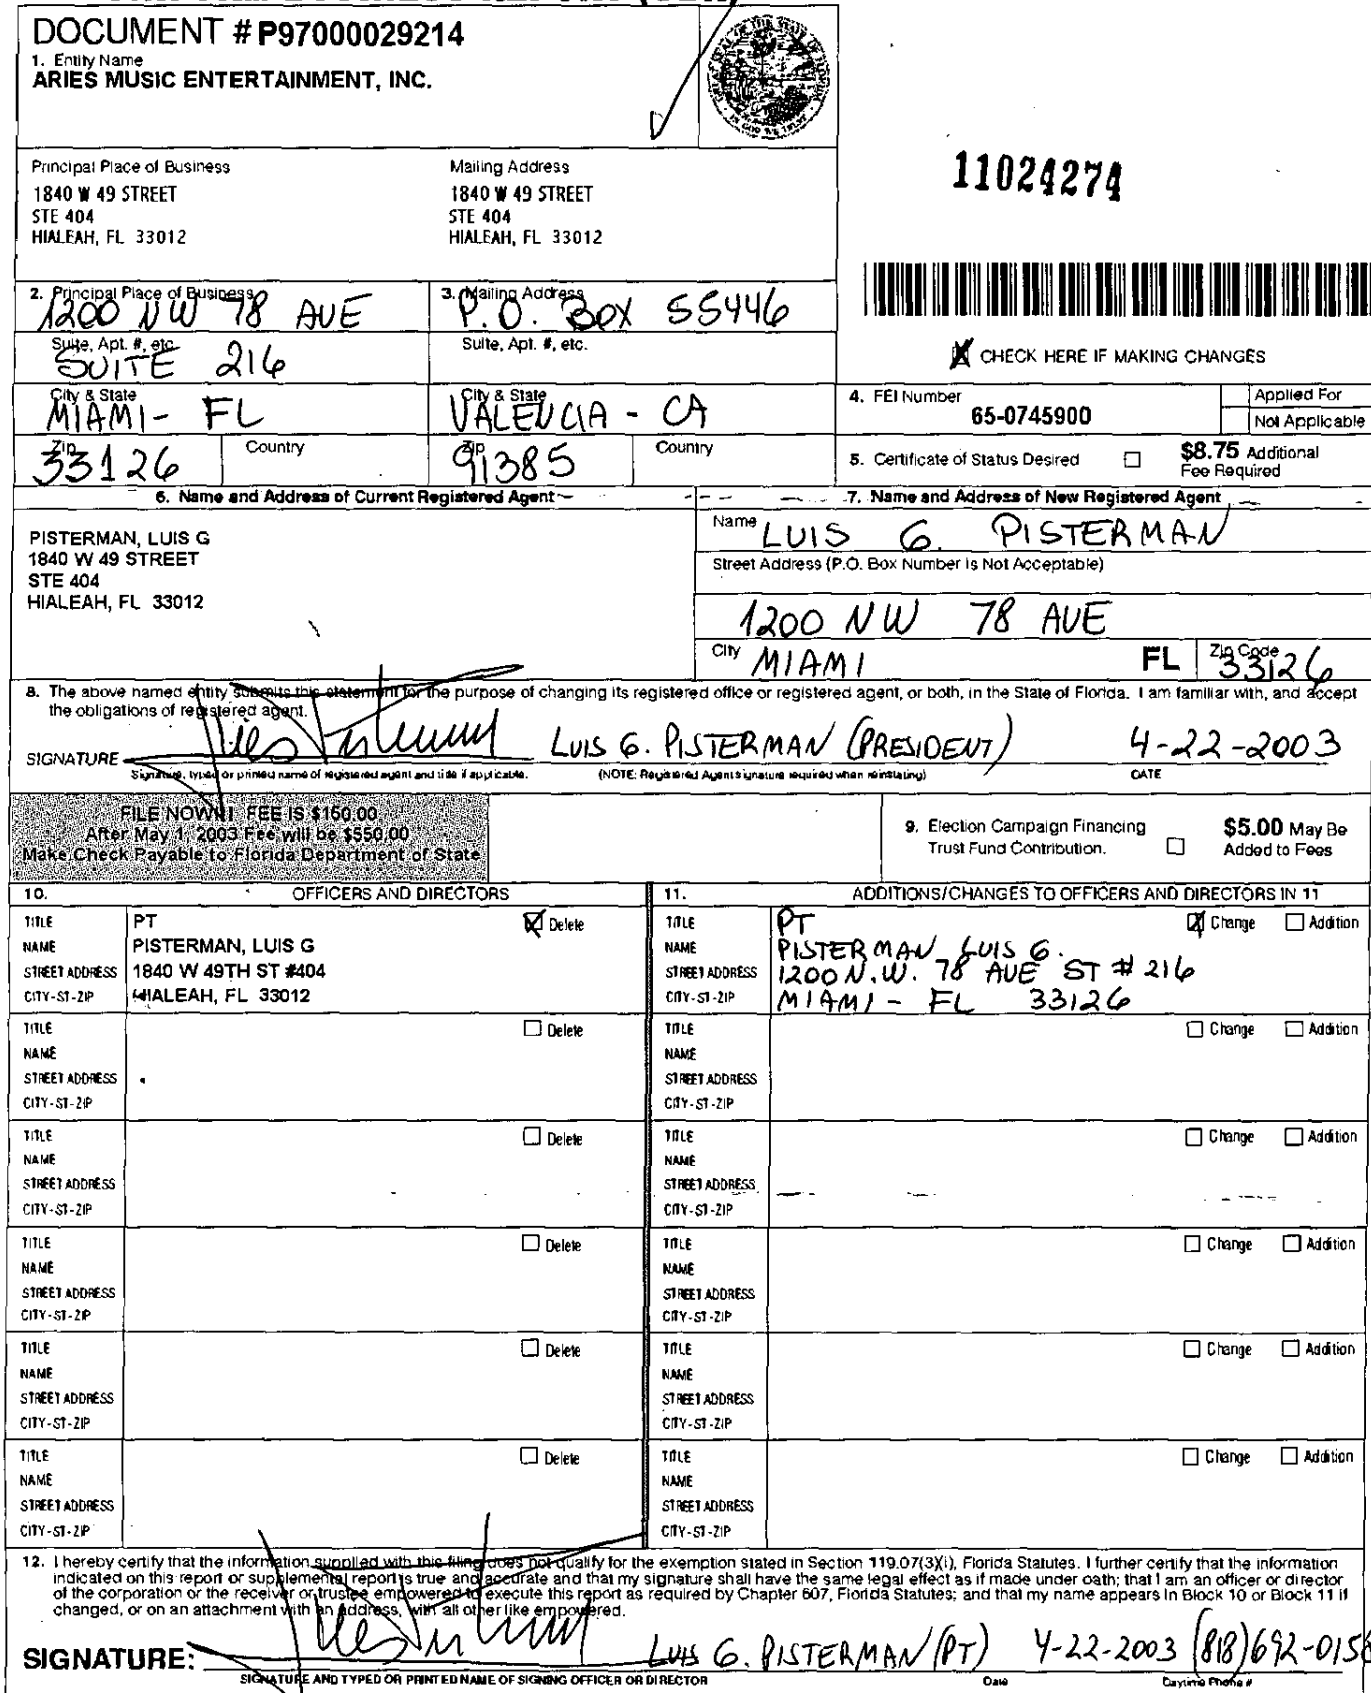 DOCUMENT # P97000029214
1. Entity Name
ARIES MUSIC ENTERTAINMENT, INC.
11024274
Principal Place of Business
1840 W 49 STREET
STE 404
HIALEAH, FL 33012
Mailing Address
1840 W 49 STREET
STE 404
HIALEAH, FL 33012
2. Principal Place of Business
1200 NW 78 AVE
Suite, Apt. #, etc.
SUITE 216
City & State
MIAMI - FL
Zip
33126
Country
3. Mailing Address
P.O. BOX 55446
Suite, Apt. #, etc.
City & State
VALENCIA - CA
Zip
91385
Country
CHECK HERE IF MAKING CHANGES
4. FEI Number
65-0745900
Applied For
Not Applicable
5. Certificate of Status Desired
$8.75 Additional
Fee Required
6. Name and Address of Current Registered Agent
PISTERMAN, LUIS G
1840 W 49 STREET
STE 404
HIALEAH, FL 33012
7. Name and Address of New Registered Agent
Name LUIS G. PISTERMAN
Street Address (P.O. Box Number is Not Acceptable)
1200 NW 78 AVE
City MIAMI FL Zip Code 33126
8. The above named entity submits this statement for the purpose of changing its registered office or registered agent, or both, in the State of Florida. I am familiar with, and accept
the obligations of registered agent.
SIGNATURE LUIS G. PISTERMAN (PRESIDENT) 4-22-2003
Signature, typed or printed name of registered agent and title if applicable. (NOTE: Registered Agent signature required when reinstating) DATE
FILE NOW!!! FEE IS $150.00
After May 1, 2003 Fee will be $550.00
Make Check Payable to Florida Department of State
9. Election Campaign Financing
Trust Fund Contribution.
$5.00 May Be
Added to Fees
10. OFFICERS AND DIRECTORS
TITLE PT Delete
NAME PISTERMAN, LUIS G
STREET ADDRESS 1840 W 49TH ST #404
CITY-ST-ZIP HIALEAH, FL 33012
TITLE Delete
NAME
STREET ADDRESS
CITY-ST-ZIP
TITLE Delete
NAME
STREET ADDRESS
CITY-ST-ZIP
TITLE Delete
NAME
STREET ADDRESS
CITY-ST-ZIP
TITLE Delete
NAME
STREET ADDRESS
CITY-ST-ZIP
TITLE Delete
NAME
STREET ADDRESS
CITY-ST-ZIP
11. ADDITIONS/CHANGES TO OFFICERS AND DIRECTORS IN 11
TITLE PT Change Addition
NAME PISTERMAN LUIS G.
STREET ADDRESS 1200 N.W. 78 AVE ST # 216
CITY-ST-ZIP MIAMI - FL 33126
TITLE Change Addition
NAME
STREET ADDRESS
CITY-ST-ZIP
TITLE Change Addition
NAME
STREET ADDRESS
CITY-ST-ZIP
TITLE Change Addition
NAME
STREET ADDRESS
CITY-ST-ZIP
TITLE Change Addition
NAME
STREET ADDRESS
CITY-ST-ZIP
TITLE Change Addition
NAME
STREET ADDRESS
CITY-ST-ZIP
12. I hereby certify that the information supplied with this filing does not qualify for the exemption stated in Section 119.07(3)(i), Florida Statutes. I further certify that the information
indicated on this report or supplemental report is true and accurate and that my signature shall have the same legal effect as if made under oath; that I am an officer or director
of the corporation or the receiver or trustee empowered to execute this report as required by Chapter 607, Florida Statutes; and that my name appears in Block 10 or Block 11 if
changed, or on an attachment with an address, with all other like empowered.
SIGNATURE: LUIS G. PISTERMAN (PT) 4-22-2003 (818)692-0156
SIGNATURE AND TYPED OR PRINTED NAME OF SIGNING OFFICER OR DIRECTOR Date Daytime Phone #